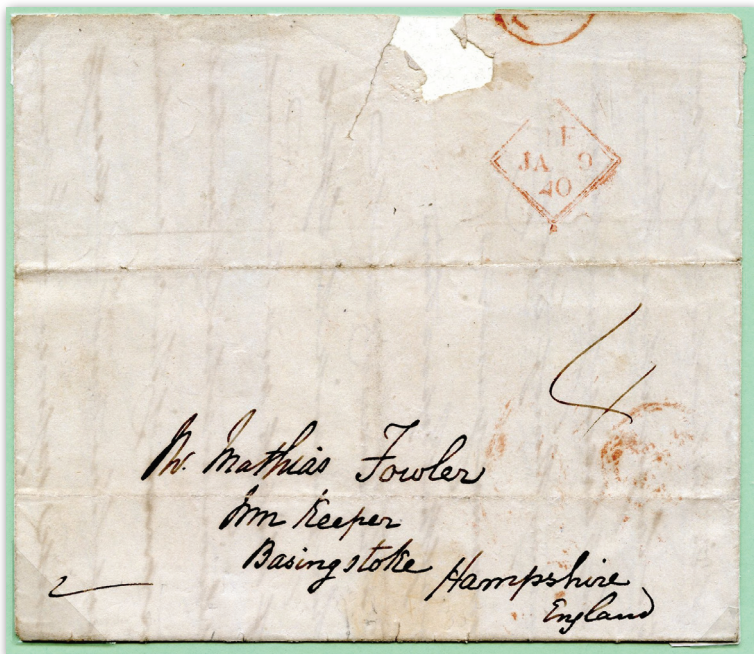 E
JA 9
40
4
Mr. Mathias Fowler
Inn Keeper
Basingstoke Hampshire
England